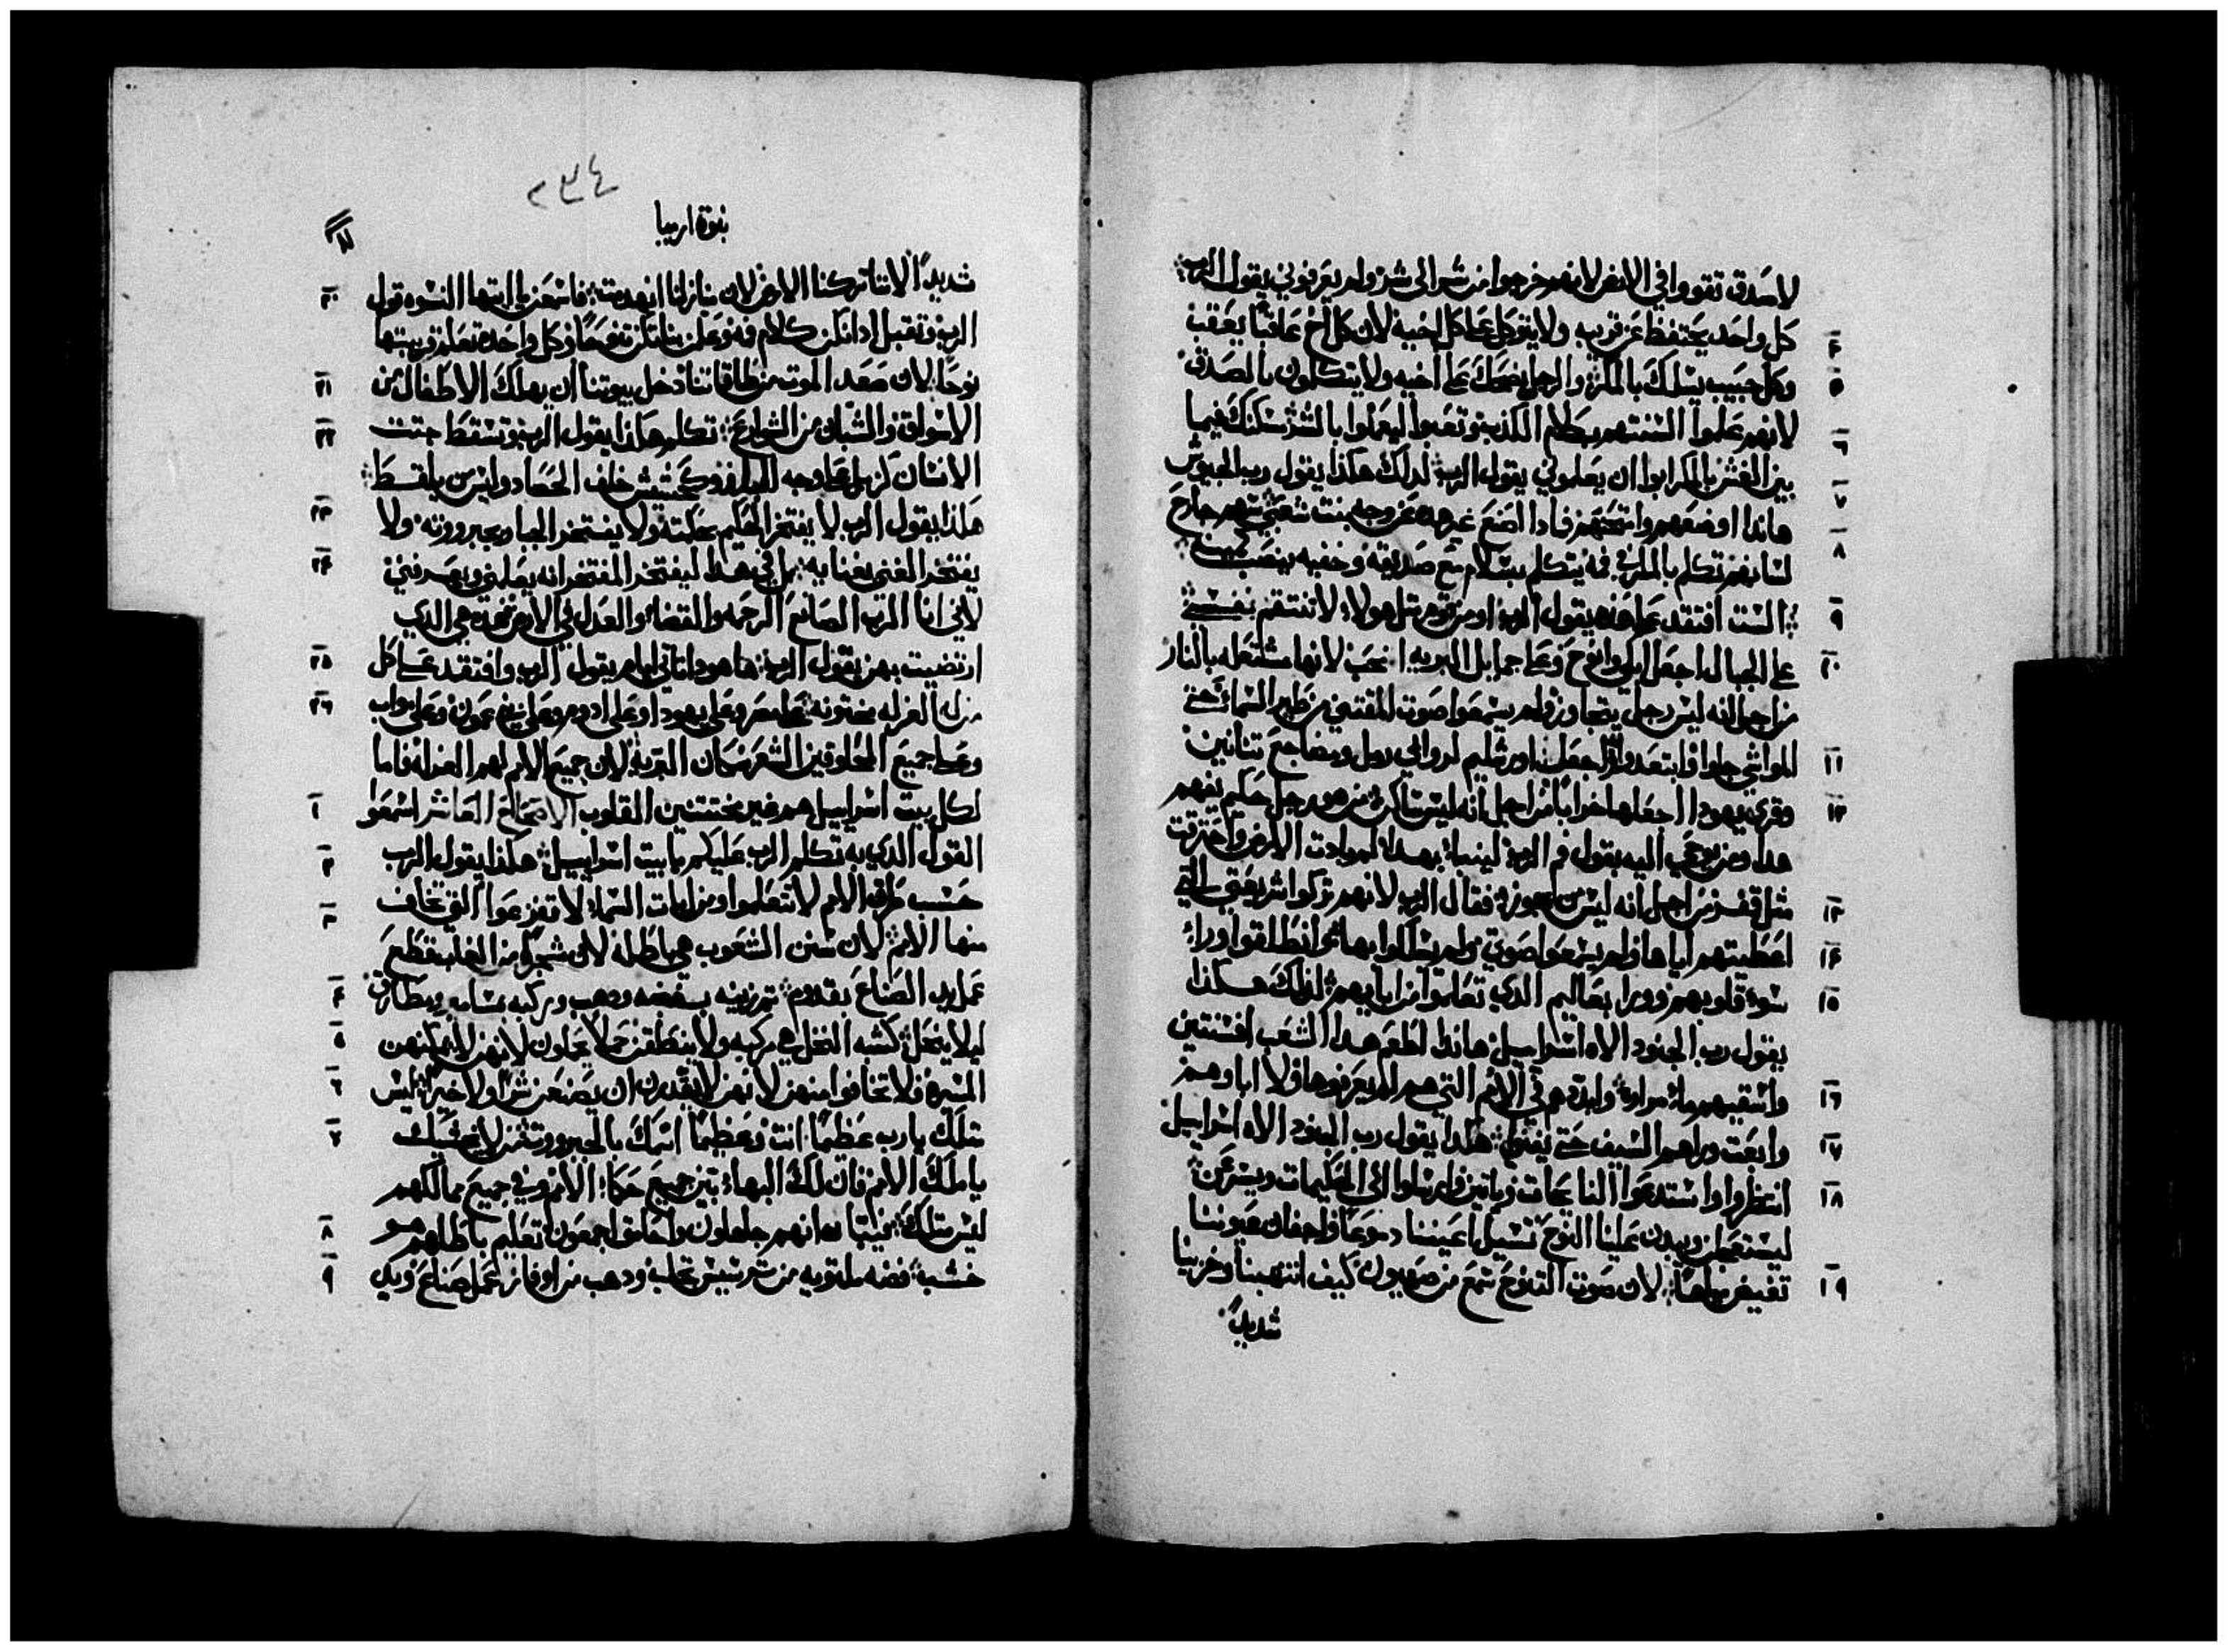 لاصدق تقووا في الارض لانهم خرجوا من شر الى شر ولم يعرفوني يقول الرب
٤ كل واحد يحتفظ عن قريبه ولا يتوكل على كل اخيه لان كل اخ عاقبًا يعقب
٥ وكل حبيب يسلك بالمكر والرجل يضحك على اخيه ولا يتكلمون بالصدق
٦ لانهم علموا السنتهم بكلام الكذب وتعبوا ليعملوا بالشر سكنك فيما
٧ بين الغش بالمكر ابوا ان يعلموني يقول الرب لدلك هكذا يقول رب الجيوش
٨ هاندا اوضعهم وامتحنهم فمادا اصنع غير هده عن وجه بنت شعبي سهم جارح
لسانهم تكلم بالمكر في فمه يتكلم بسلام مع صديقه وخفيه ينصب
٩ الست افتقد على هده يقول الرب او من قوم مثل هولاء لا تنتقم نفسي
١٠ على الجبال اجعل البكا والنوح وعلى جمايل البريه انحب لانها مشتعله بالنار
من اجل انه ليس رجل يتجاوز ولم يسمعوا صوت المقتني من طير السماء حتى
١١ المواشي جلوا وابتعدوا واجعل اورشليم لدوالي رمل ومضاجع تنانين
١٢ وقري يهودا اجعلها خرابًا من اجل انه ليس ساكن من هو رجل حكيم يفهم
هدا ومن يوحى اليه يقول فم الرب لينبا بهدا لمادا بادت الارض واحترقت
١٣ مثل قفر من اجل انه ليس من يجوز فقال الرب لانهم تركوا شريعتي التي
١٤ اعطيتهم اياها ولم يسمعوا صوتي ولم يسلكوا بها وانطلقوا وراء
١٥ سوء قلوبهم وورا بعاليم الدي تعلموا من ابايهم لدلك هكذا
يقول رب الجنود الاه اسراييل هاندا اطعم هدا الشعب افسنتين
١٦ واسقيهم ماء مراره وابددهم في الامم التي هم لم يعرفوها ولا اباوهم
١٧ وابعت وراهم السيف حتى يفنوا هكدا يقول رب الجنود الاه اسراييل
١٨ انتظروا واستدعوا النايحات وياتين وارسلوا الى الحكيمات ويسرعن
ليستعجلن ويبدون علينا النوح تسيل اعيننا دموعًا واجفان عيوننا
١٩ تفيض مياهًا لان صوت النوح سمع من صهيون كيف انتهبنا وخزينا
شديدًا
٢٣٤
نبوة ارميا
شديدًا لاننا تركنا الارض لان منازلنا انهدمت فاسمعن يا ايتها النسوه قول ٢٠
الرب وتقبل ادانكن كلام فمه وعلمن بناتكن نوحًا وكل واحده تعلم قريبتها
نوحًا لان صعد الموت من طاقاتنا دخل بيوتنا ان يهلك الاطفال من ٢١
الاسواق والشبان من الشوارع تكلم هكذا يقول الرب وتسقط جتت ٢٢
الانسان كزبل على وجه البلد وكحشيش خلف الحصاد وليس من يلقط
هكذا يقول الرب لا يفتخر الحكيم بحكمته ولا يفتخر الجبار بجبروته ولا ٢٣
يفتخر الغني بغنايه بل في هدا ليفتخر المفتخر انه يعلمني ويعرفني ٢٤
لاني انا الرب الصانع الرحمه والقضاء والعدل في الارض هده هي الدي
ارتضيت بهن يقول الرب ها هودا تاتي ايام يقول الرب وافتقد على كل ٢٥
من له الغرله مختونه على مصر وعلى يهودا وعلى ادوم وعلى بني عمون وعلى مواب ٢٦
وعلى جميع المحلوقين الشعر سكان البريه لان جميع الامم لهم الغرله فاما
لكل بيت اسراييل هم غير مختتنين القلوب الاصحاح العاشر اسمعوا ١
القول الدي به تكلم الرب عليكم يا بيت اسراييل هكذا يقول الرب ٢
حسب طرق الامم لا تتعلموا ومن ايات السماء لا تفزعوا التي تخاف ٣
منها الامم لان سنن الشعوب هي باطله لان شجرة من الغاب قطع
عمل يد الصناع بقدوم تمزينه بفضه ودهب وتركبه بمسامير ومطارق ٤
ليلا ينحل كشبه النخل هي مركبه ولا ينطقن حملا يحملون لانهن لا يمكنهن ٥
المسير فلا تخافوا منهن لانهن لا يقدرن ان يصنعن شرًا ولا خيرًا ليس ٦
متلك يا رب عظيمًا انت وعظيمًا اسمك بالجبروت من لا يخشيك ٧
يا ملك الامم فان لك البهاء بين جميع حكماء الامم وفي جميع ممالكهم
ليس متلك فيتبا انهم جاهلون واحمقوا اجمعون تعليم باطلهم هو ٨
خشبه فضه ملتويه من ترسيس تجلب ودهب من اوفاز عمل صناع ويدي ٩